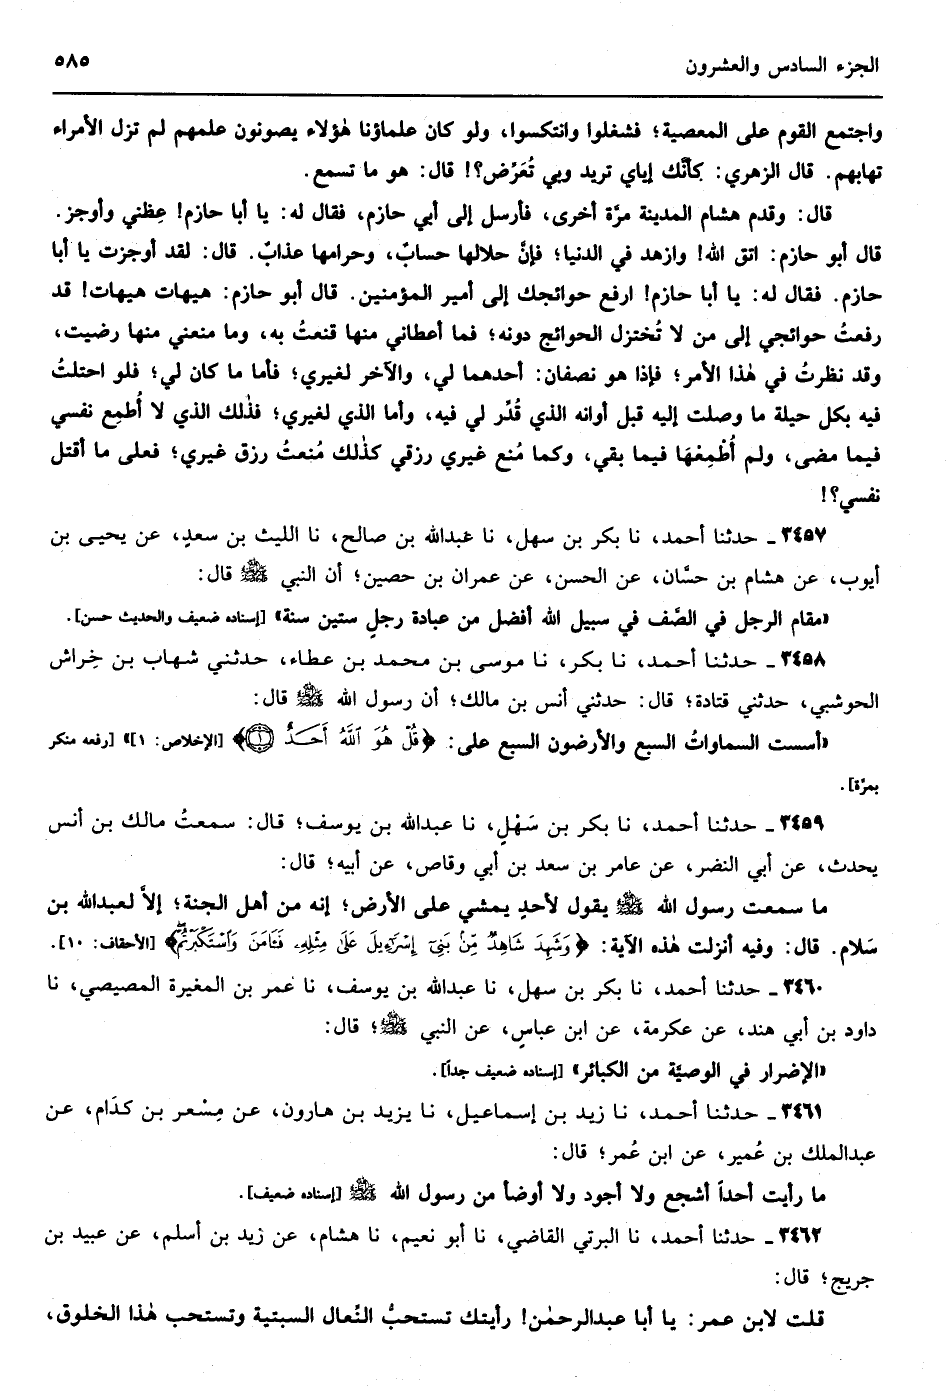 الجزء السادس والعشرون ٥٨٥
واجتمع القوم على المعصية؛ فشغلوا وانتكسوا، ولو كان علماؤنا هٰؤلاء يصونون علمهم لم تزل الأمراء
تهابهم. قال الزهري: كأنَّك إياي تريد وبي تُعَرِّض؟! قال: هو ما تسمع.
قال: وقدم هشام المدينة مرَّة أخرى، فأرسل إلى أبي حازم، فقال له: يا أبا حازم! عِظني وأوجز.
قال أبو حازم: اتق الله! وازهد في الدنيا؛ فإنَّ حلالها حسابٌ، وحرامها عذابٌ. قال: لقد أوجزت يا أبا
حازم. فقال له: يا أبا حازم! ارفع حوائجك إلى أمير المؤمنين. قال أبو حازم: هيهات هيهات! قد
رفعتُ حوائجي إلى من لا تُختزل الحوائج دونه؛ فما أعطاني منها قنعتُ به، وما منعني منها رضيت،
وقد نظرتُ في هٰذا الأمر؛ فإذا هو نصفان: أحدهما لي، والآخر لغيري؛ فأما ما كان لي؛ فلو احتلتُ
فيه بكل حيلة ما وصلت إليه قبل أوانه الذي قُدِّر لي فيه، وأما الذي لغيري؛ فذٰلك الذي لا أُطمِع نفسي
فيما مضى، ولم أُطْمِعْهَا فيما بقي، وكما مُنع غيري رزقي كذٰلك مُنعتُ رزق غيري؛ فعلى ما أقتل
نفسي؟!
٣٤٥٧ ـ حدثنا أحمد، نا بكر بن سهل، نا عبدالله بن صالح، نا الليث بن سعدٍ، عن يحيى بن
أيوب، عن هشام بن حسَّان، عن الحسن، عن عمران بن حصين؛ أن النبي ﷺ قال:
«مقام الرجل في الصَّف في سبيل الله أفضل من عبادة رجلٍ ستين سنة» [إسناده ضعيف والحديث حسن].
٣٤٥٨ ـ حدثنا أحمد، نا بكر، نا موسى بن محمد بن عطاء، حدثني شهاب بن خِراش
الحوشبي، حدثني قتادة؛ قال: حدثني أنس بن مالك؛ أن رسول الله ﷺ قال:
«أسست السماواتُ السبع والأرضون السبع على: ﴿قُلْ هُوَ ٱللَّهُ أَحَدٌ ۝١﴾ [الإخلاص: ١]» [رفعه منكر
بمرَّة].
٣٤٥٩ ـ حدثنا أحمد، نا بكر بن سَهْلٍ، نا عبدالله بن يوسف؛ قال: سمعتُ مالك بن أنس
يحدث، عن أبي النضر، عن عامر بن سعد بن أبي وقاص، عن أبيه؛ قال:
ما سمعت رسول الله ﷺ يقول لأحدٍ يمشي على الأرض؛ إنه من أهل الجنة؛ إلاَّ لعبدالله بن
سَلام. قال: وفيه أنزلت هٰذه الآية: ﴿وَشَهِدَ شَاهِدٌ مِّنۢ بَنِىٓ إِسْرَٰٓءِيلَ عَلَىٰ مِثْلِهِۦ فَـَٔامَنَ وَٱسْتَكْبَرْتُمْ﴾ [الأحقاف: ١٠].
٣٤٦٠ ـ حدثنا أحمد، نا بكر بن سهل، نا عبدالله بن يوسف، نا عُمر بن المغيرة المصيصي، نا
داود بن أبي هند، عن عكرمة، عن ابن عباسٍ، عن النبي ﷺ؛ قال:
«الإضرار في الوصيَّة من الكبائر» [إسناده ضعيف جداً].
٣٤٦١ ـ حدثنا أحمد، نا زيد بن إسماعيل، نا يزيد بن هارون، عن مِسْعر بن كدَام، عن
عبدالملك بن عُمير، عن ابن عُمر؛ قال:
ما رأيت أحداً أشجع ولا أجود ولا أوضأ من رسول الله ﷺ [إسناده ضعيف].
٣٤٦٢ ـ حدثنا أحمد، نا البرتي القاضي، نا أبو نعيم، نا هشام، عن زيد بن أسلم، عن عبيد بن
جريج؛ قال:
قلت لابن عمر: يا أبا عبدالرحمٰن! رأيتك تستحبُّ النِّعال السبتية وتستحب هٰذا الخلوق،